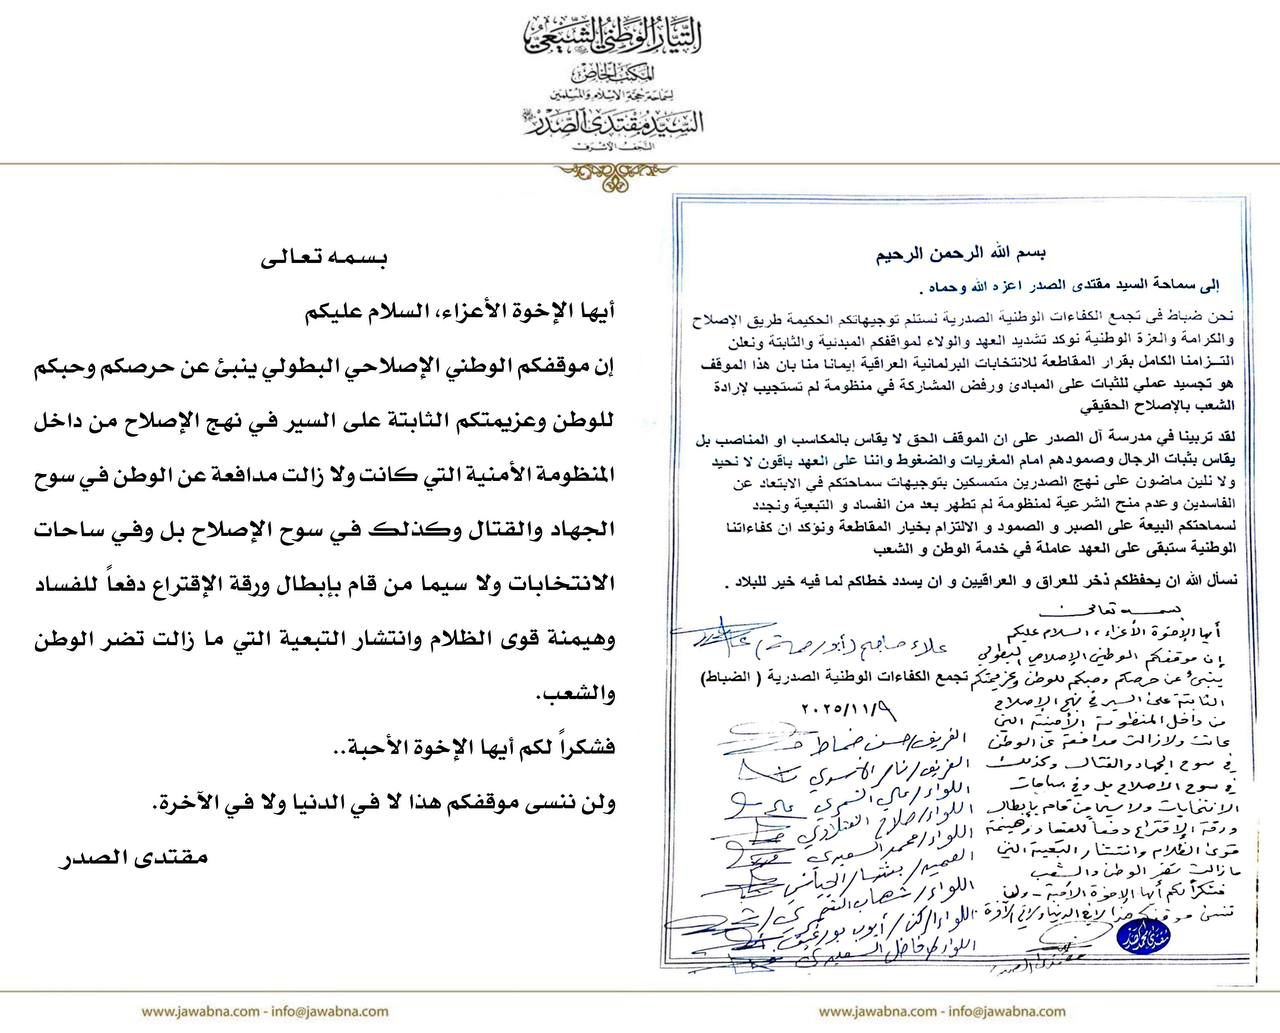 التيار الوطني الشيعي
المكتب الخاص
لسماحة حجة الإسلام والمسلمين
السيد مقتدى الصدر
النجف الأشرف
بسم الله الرحمن الرحيم
إلى سماحة السيد مقتدى الصدر اعزه الله وحماه .
نحن ضباط في تجمع الكفاءات الوطنية الصدرية نستلم توجيهاتكم الحكيمة طريق الإصلاح
والكرامة والعزة الوطنية نوكد تشديد العهد والولاء لمواقفكم المبدئية والثابتة ونعلن
التزامنا الكامل بقرار المقاطعة للانتخابات البرلمانية العراقية إيمانا منا بان هذا الموقف
هو تجسيد عملي للثبات على المبادئ ورفض المشاركة في منظومة لم تستجيب لإرادة
الشعب بالإصلاح الحقيقي
لقد تربينا في مدرسة آل الصدر على ان الموقف الحق لا يقاس بالمكاسب او المناصب بل
يقاس بثبات الرجال وصمودهم امام المغريات والضغوط واننا على العهد باقون لا نحيد
ولا نلين ماضون على نهج الصدرين متمسكين بتوجيهات سماحتكم في الابتعاد عن
الفاسدين وعدم منح الشرعية لمنظومة لم تطهر بعد من الفساد و التبعية ونجدد
لسماحتكم البيعة على الصبر و الصمود و الالتزام بخيار المقاطعة ونؤكد ان كفاءاتنا
الوطنية ستبقى على العهد عاملة في خدمة الوطن و الشعب
نسأل الله ان يحفظكم ذخر للعراق و العراقيين و ان يسدد خطاكم لما فيه خير للبلاد .
علاء (أبو رحمة)
تجمع الكفاءات الوطنية الصدرية ( الضباط)
٢٠٢٥/١١/٩
الفريق/ حسن
الفريق/
اللواء/ علي الشمري
اللواء/ صلاح
اللواء/ محمد السعيدي
العميد/
اللواء/ شهاب
اللواء الركن/ أيوب
اللواء/ فاضل
بسمه تعالى
أيها الإخوة الأعزاء، السلام عليكم
إن موقفكم الوطني الإصلاحي البطولي
ينبئ عن حرصكم وحبكم للوطن وعزيمتكم
الثابتة على السير في نهج الإصلاح
من داخل المنظومة الأمنية التي
كانت ولا زالت مدافعة عن الوطن
في سوح الجهاد والقتال وكذلك
في سوح الإصلاح بل وفي ساحات
الانتخابات ولا سيما من قام بإبطال
ورقة الإقتراع دفعاً للفساد وهيمنة
قوى الظلام وانتشار التبعية التي
ما زالت تضر الوطن والشعب
فشكراً لكم أيها الإخوة الأحبة - ولن
ننسى موقفكم هذا لا في الدنيا ولا في الآخرة
مقتدى الصدر
بسمه تعالى
أيها الإخوة الأعزاء، السلام عليكم
إن موقفكم الوطني الإصلاحي البطولي ينبئ عن حرصكم وحبكم
للوطن وعزيمتكم الثابتة على السير في نهج الإصلاح من داخل
المنظومة الأمنية التي كانت ولا زالت مدافعة عن الوطن في سوح
الجهاد والقتال وكذلك في سوح الإصلاح بل وفي ساحات
الانتخابات ولا سيما من قام بإبطال ورقة الإقتراع دفعاً للفساد
وهيمنة قوى الظلام وانتشار التبعية التي ما زالت تضر الوطن
والشعب.
فشكراً لكم أيها الإخوة الأحبة..
ولن ننسى موقفكم هذا لا في الدنيا ولا في الآخرة.
مقتدى الصدر
www.jawabna.com - info@jawabna.com
www.jawabna.com - info@jawabna.com